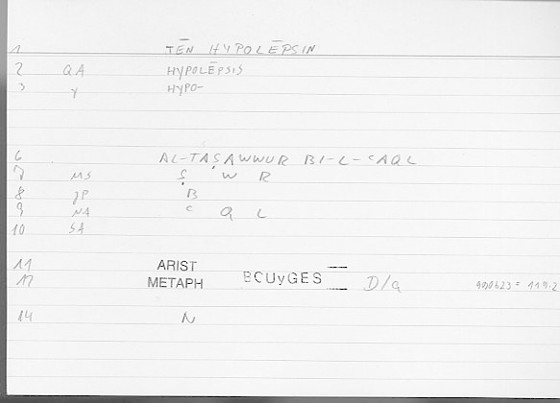 1 TĒN HYPOLĒPSIN
2 QA HYPOLĒPSIS
3 γ HYPO-
6 AL-TAṢAWWUR BI-L-ʿAQL
7 MS Ṣ W R
8 JP B
9 NA ʿ Q L
10 SA
11 ARIST
METAPH BCUyGES D/a
14 N